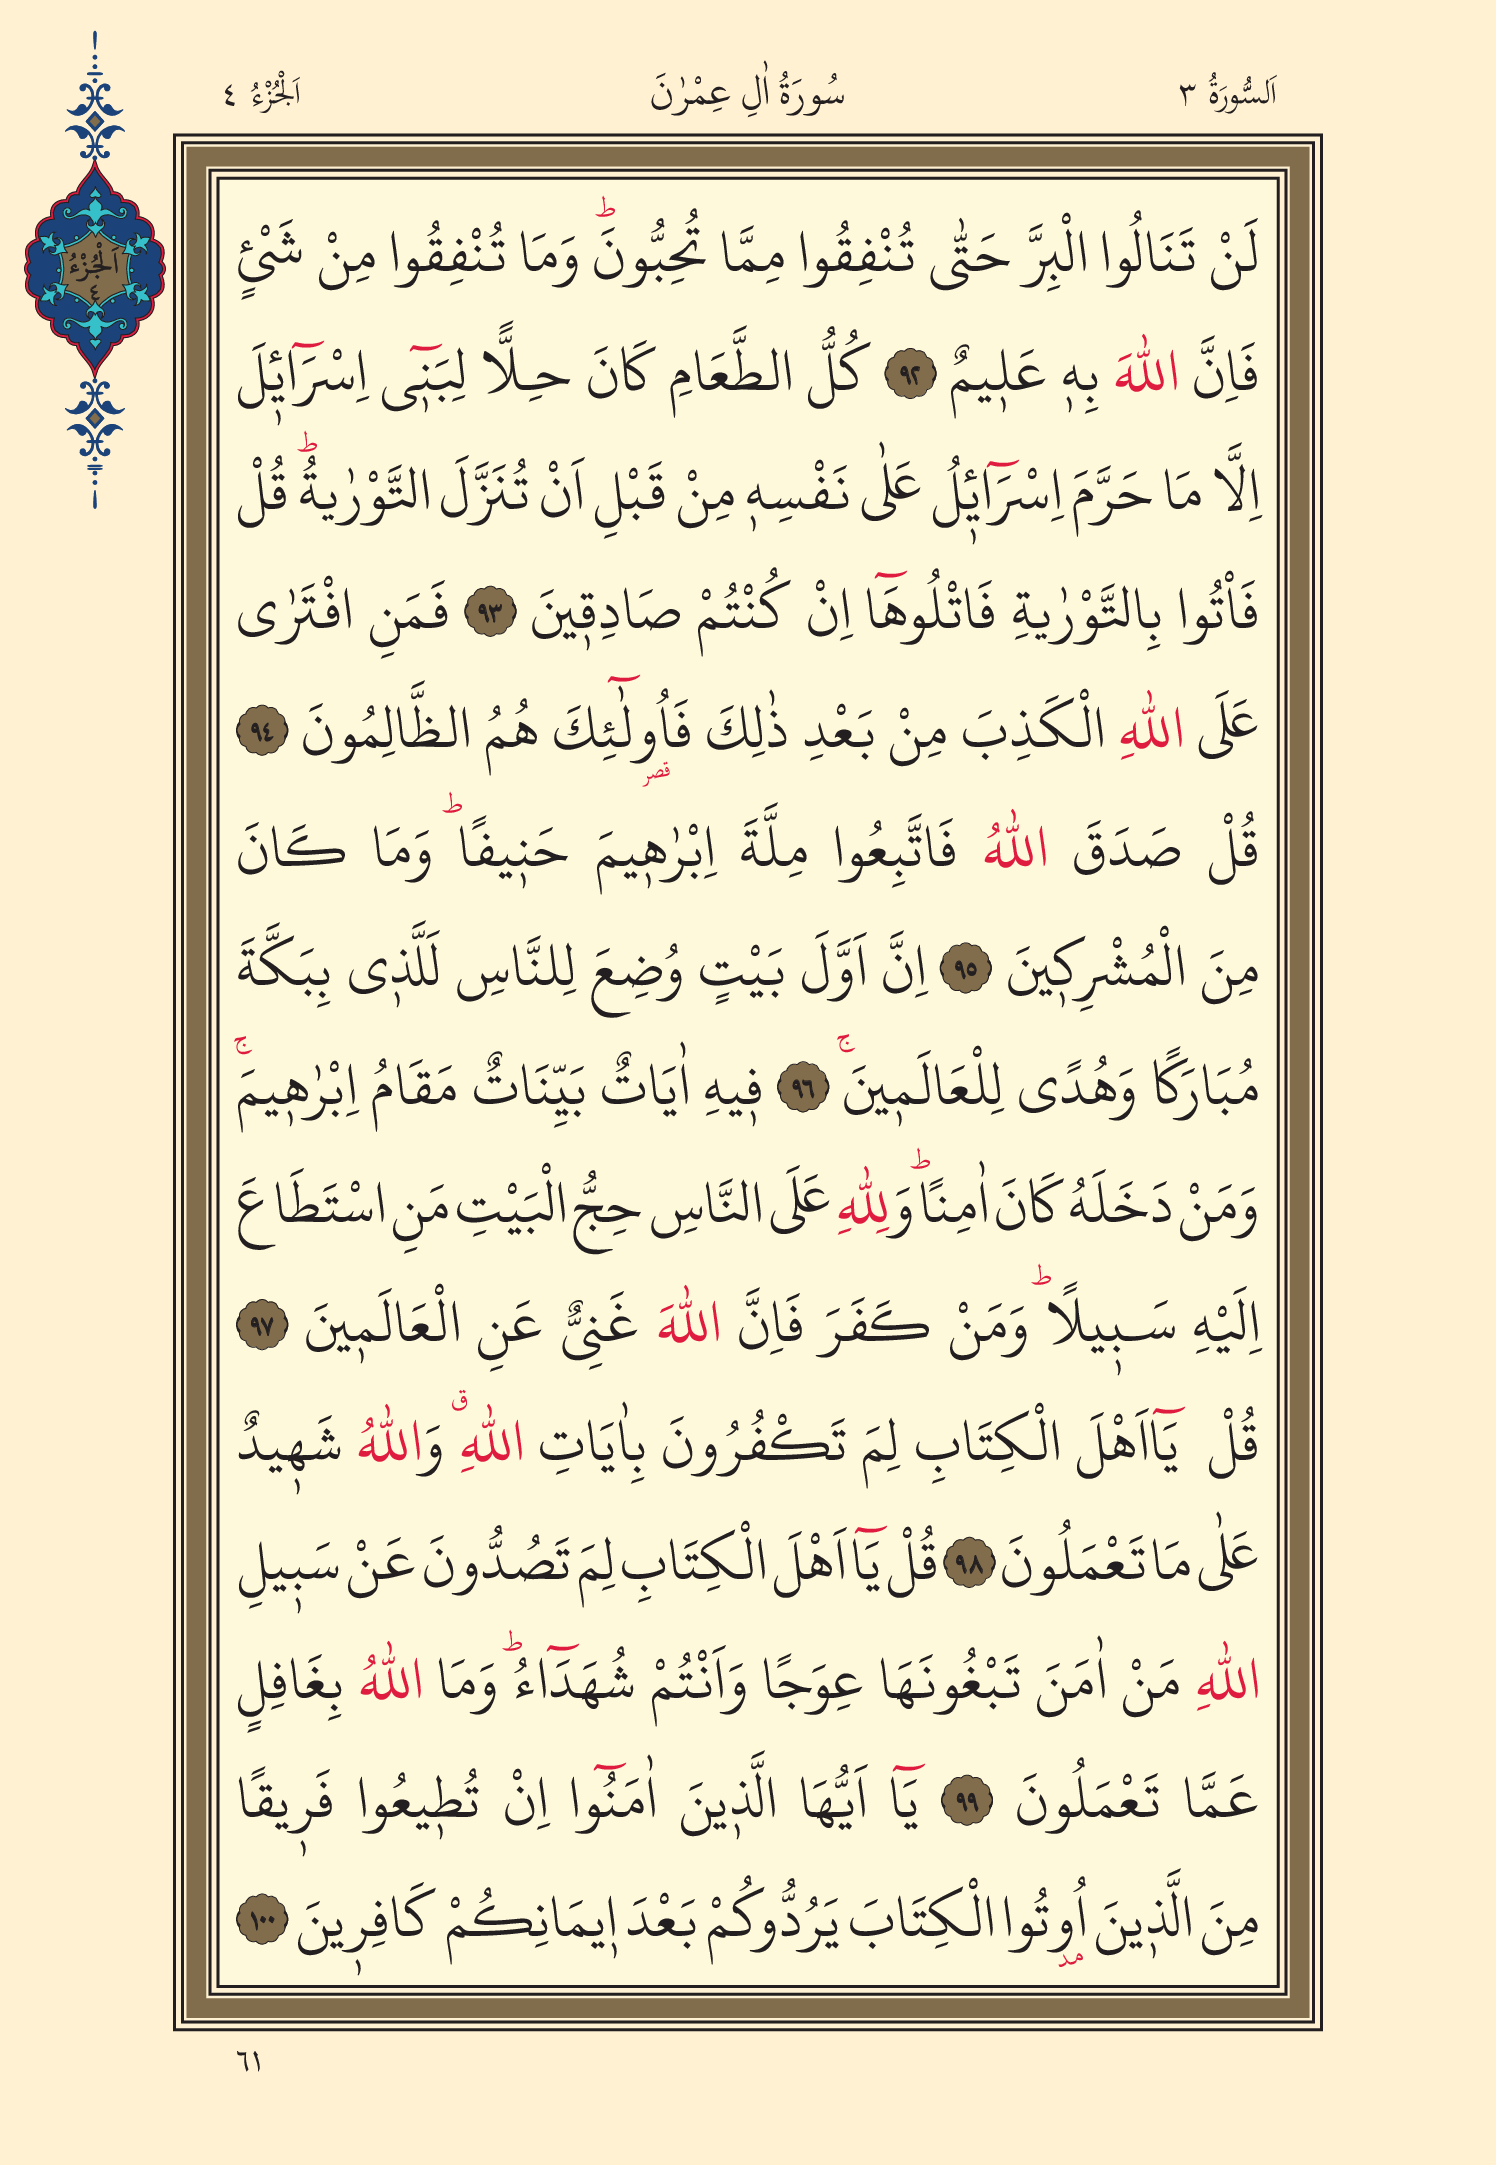 اَلسُّورَةُ ٣ سُورَةُ اٰلِ عِمْرٰنَ اَلْجُزْءُ ٤
اَلْجُزْءُ
٤
لَنْ تَنَالُوا الْبِرَّ حَتّٰى تُنْفِقُوا مِمَّا تُحِبُّونَۜ وَمَا تُنْفِقُوا مِنْ شَيْءٍ
فَاِنَّ اللّٰهَ بِهٖ عَلٖيمٌ ٩٢ كُلُّ الطَّعَامِ كَانَ حِلًّا لِبَنٖٓى اِسْرَٓائٖلَ
اِلَّا مَا حَرَّمَ اِسْرَٓائٖلُ عَلٰى نَفْسِهٖ مِنْ قَبْلِ اَنْ تُنَزَّلَ التَّوْرٰيةُؕ قُلْ
فَاْتُوا بِالتَّوْرٰيةِ فَاتْلُوهَٓا اِنْ كُنْتُمْ صَادِقٖينَ ٩٣ فَمَنِ افْتَرٰى
عَلَى اللّٰهِ الْكَذِبَ مِنْ بَعْدِ ذٰلِكَ فَاُولٰٓئِكَ هُمُ الظَّالِمُونَ ٩٤
قصر
قُلْ صَدَقَ اللّٰهُ فَاتَّبِعُوا مِلَّةَ اِبْرٰهٖيمَ حَنٖيفًاؕ وَمَا كَانَ
مِنَ الْمُشْرِكٖينَ ٩٥ اِنَّ اَوَّلَ بَيْتٍ وُضِعَ لِلنَّاسِ لَلَّذٖى بِبَكَّةَ
مُبَارَكًا وَهُدًى لِلْعَالَمٖينَۚ ٩٦ فٖيهِ اٰيَاتٌ بَيِّنَاتٌ مَقَامُ اِبْرٰهٖيمَۚ
وَمَنْ دَخَلَهُ كَانَ اٰمِنًاؕ وَلِلّٰهِ عَلَى النَّاسِ حِجُّ الْبَيْتِ مَنِ اسْتَطَاعَ
اِلَيْهِ سَبٖيلًاؕ وَمَنْ كَفَرَ فَاِنَّ اللّٰهَ غَنِىٌّ عَنِ الْعَالَمٖينَ ٩٧
قُلْ يَٓا اَهْلَ الْكِتَابِ لِمَ تَكْفُرُونَ بِاٰيَاتِ اللّٰهِࣗ وَاللّٰهُ شَهٖيدٌ
عَلٰى مَا تَعْمَلُونَ ٩٨ قُلْ يَٓا اَهْلَ الْكِتَابِ لِمَ تَصُدُّونَ عَنْ سَبٖيلِ
اللّٰهِ مَنْ اٰمَنَ تَبْغُونَهَا عِوَجًا وَاَنْتُمْ شُهَدَٓاءُؕ وَمَا اللّٰهُ بِغَافِلٍ
عَمَّا تَعْمَلُونَ ٩٩ يَٓا اَيُّهَا الَّذٖينَ اٰمَنُٓوا اِنْ تُطٖيعُوا فَرٖيقًا
مِنَ الَّذٖينَ اُوتُوا الْكِتَابَ يَرُدُّوكُمْ بَعْدَ اٖيمَانِكُمْ كَافِرٖينَ ١٠٠
مد
٦١